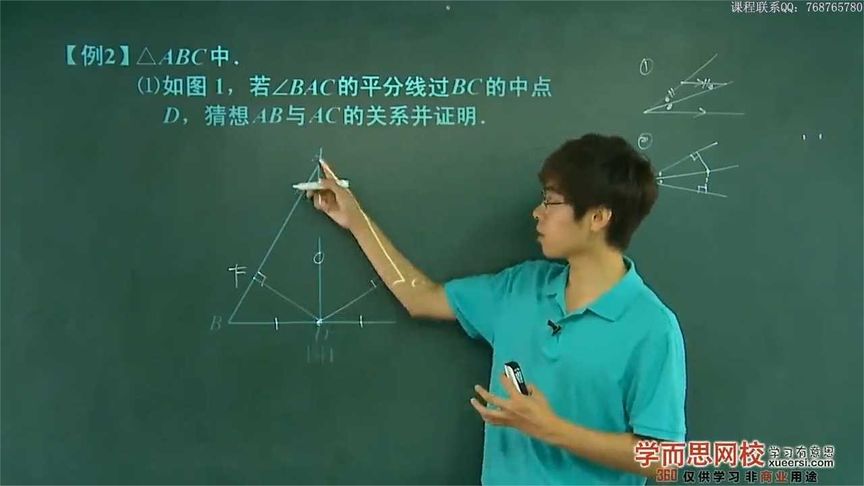 课程联系QQ：768765780
【例2】△ABC中．
⑴如图1，若∠BAC的平分线过BC的中点
D，猜想AB与AC的关系并证明．
①
②
F
B
C
图1
学而思网校 学习有意思
xueersi.com
360 仅供学习 非商业用途